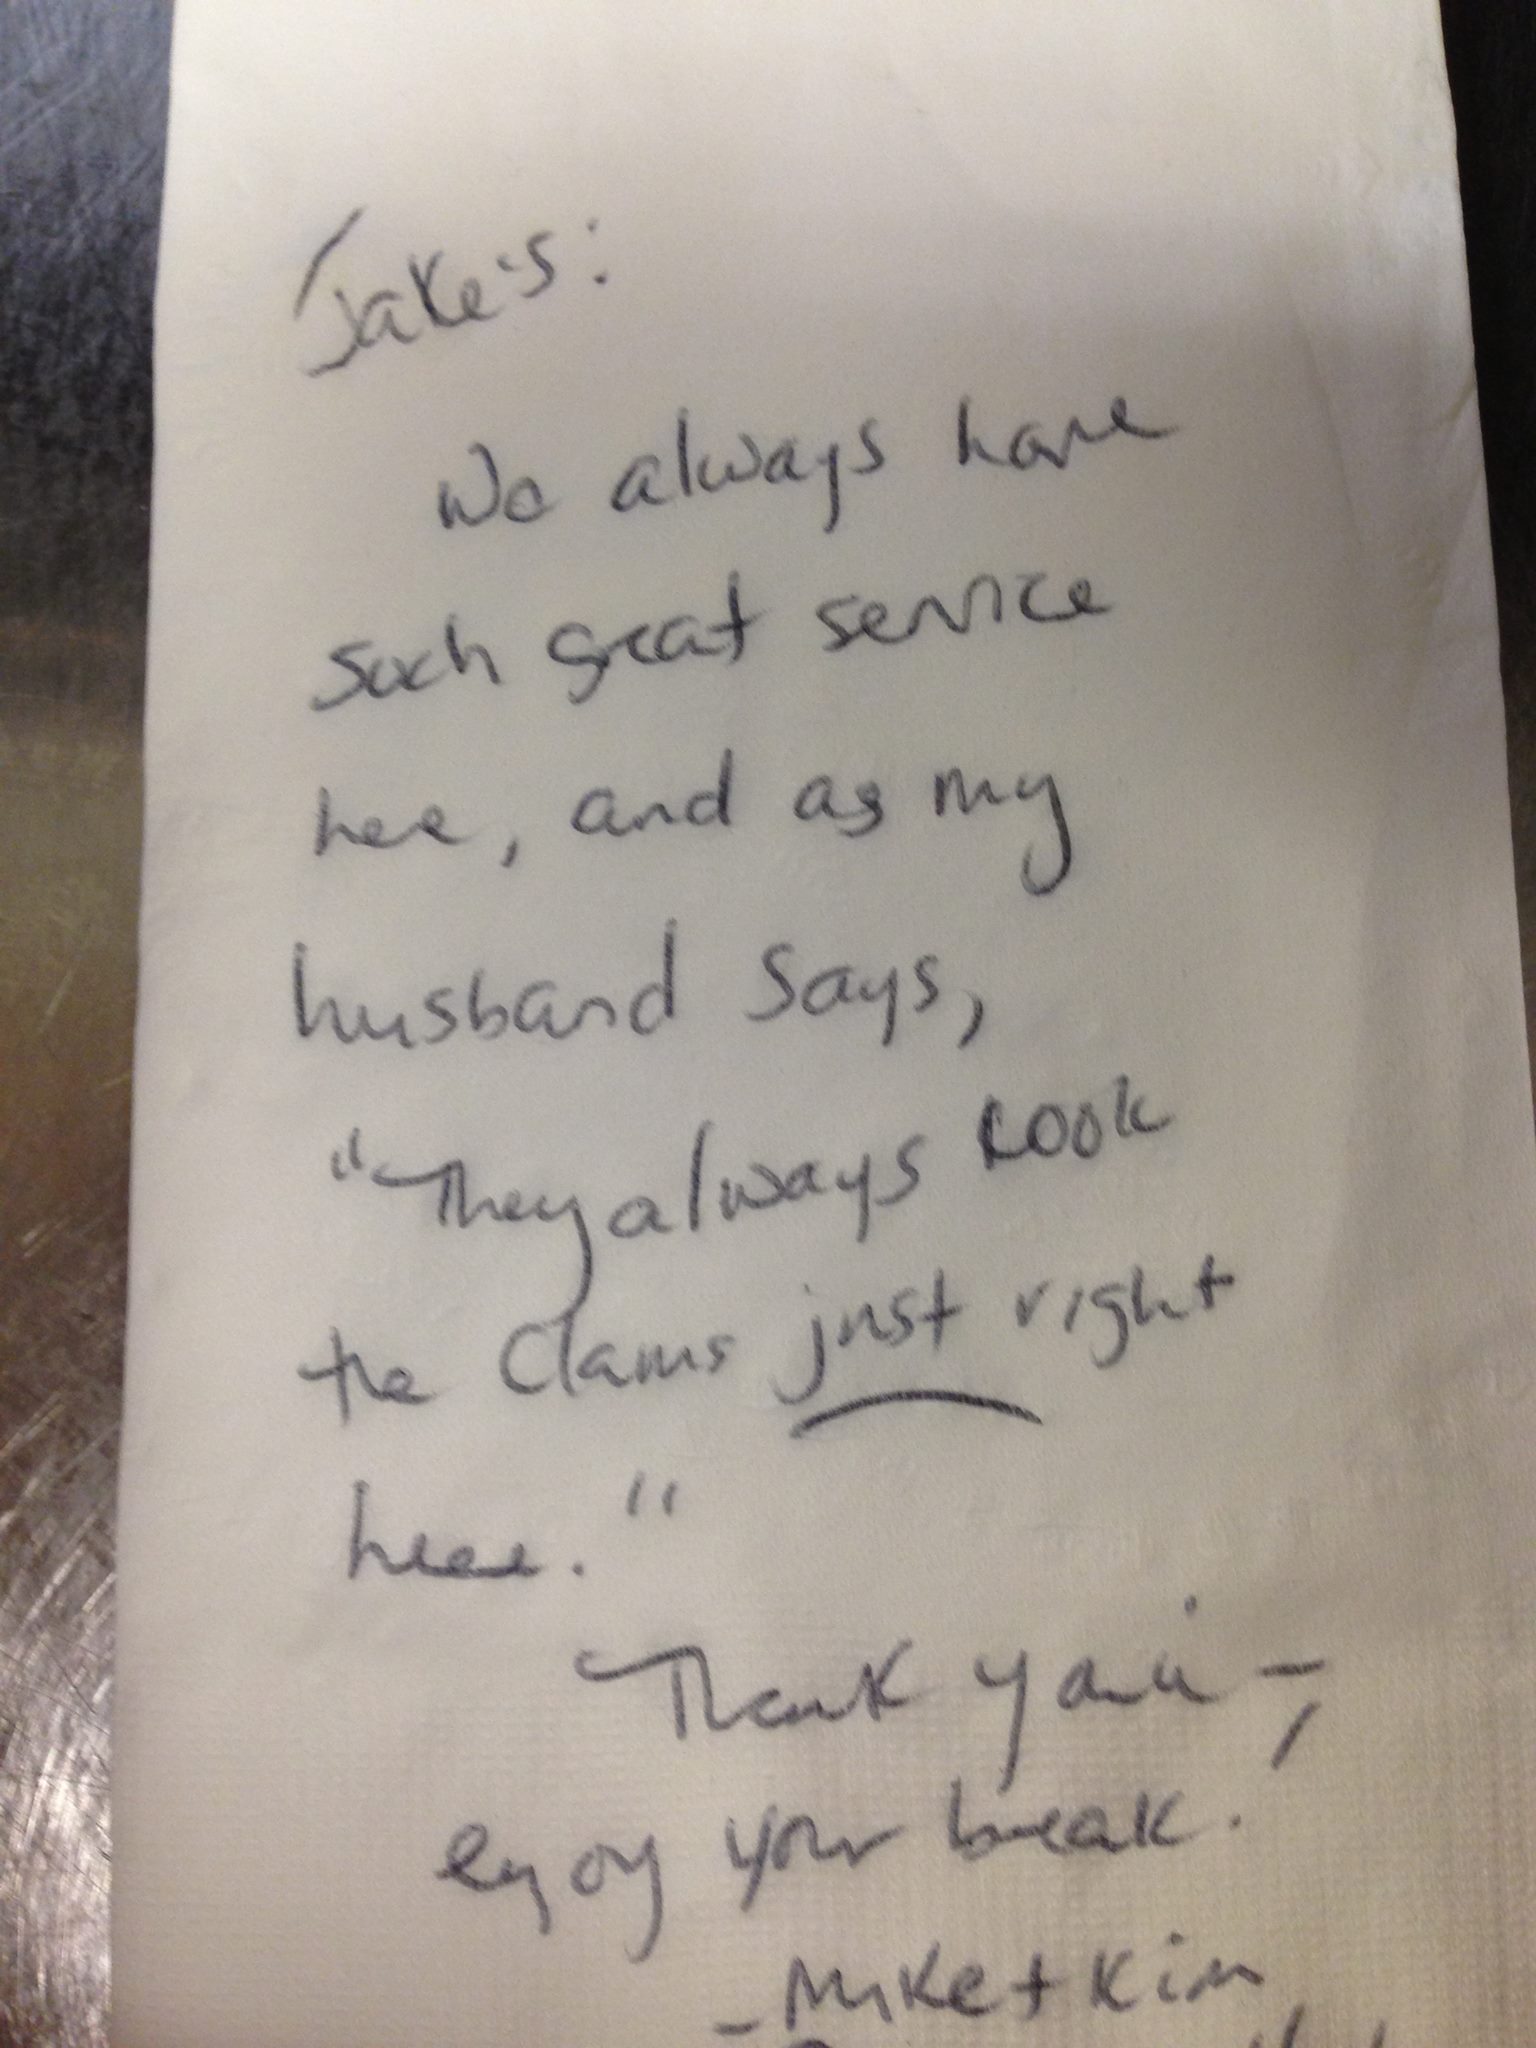 Jake's:
We always have
such great service
here, and as my
husband says,
"They always cook
the clams just right
here."
Thank you -,
enjoy your break.
- Mike + Kim